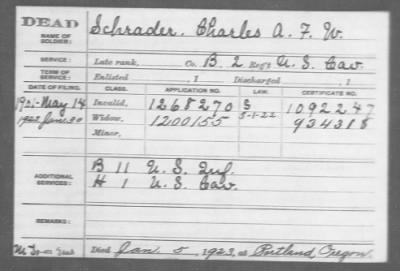 DEAD
NAME OF SOLDIER: Schrader, Charles A. F. W.
SERVICE: Late rank, Co. B, 2 Reg't U.S. Cav.
TERM OF SERVICE: Enlisted , 1 Discharged , 1
DATE OF FILING. CLASS. APPLICATION NO. LAW. CERTIFICATE NO.
1921-May 14 Invalid, 1268270 S 1092247
1923 Widow, 1200155 5-1-22 934318
Minor,
ADDITIONAL SERVICES: B 11 U.S. Inf.
H 1 U.S. Cav.
REMARKS:
Died Jan. 5, 1923, at Portland, Oregon.